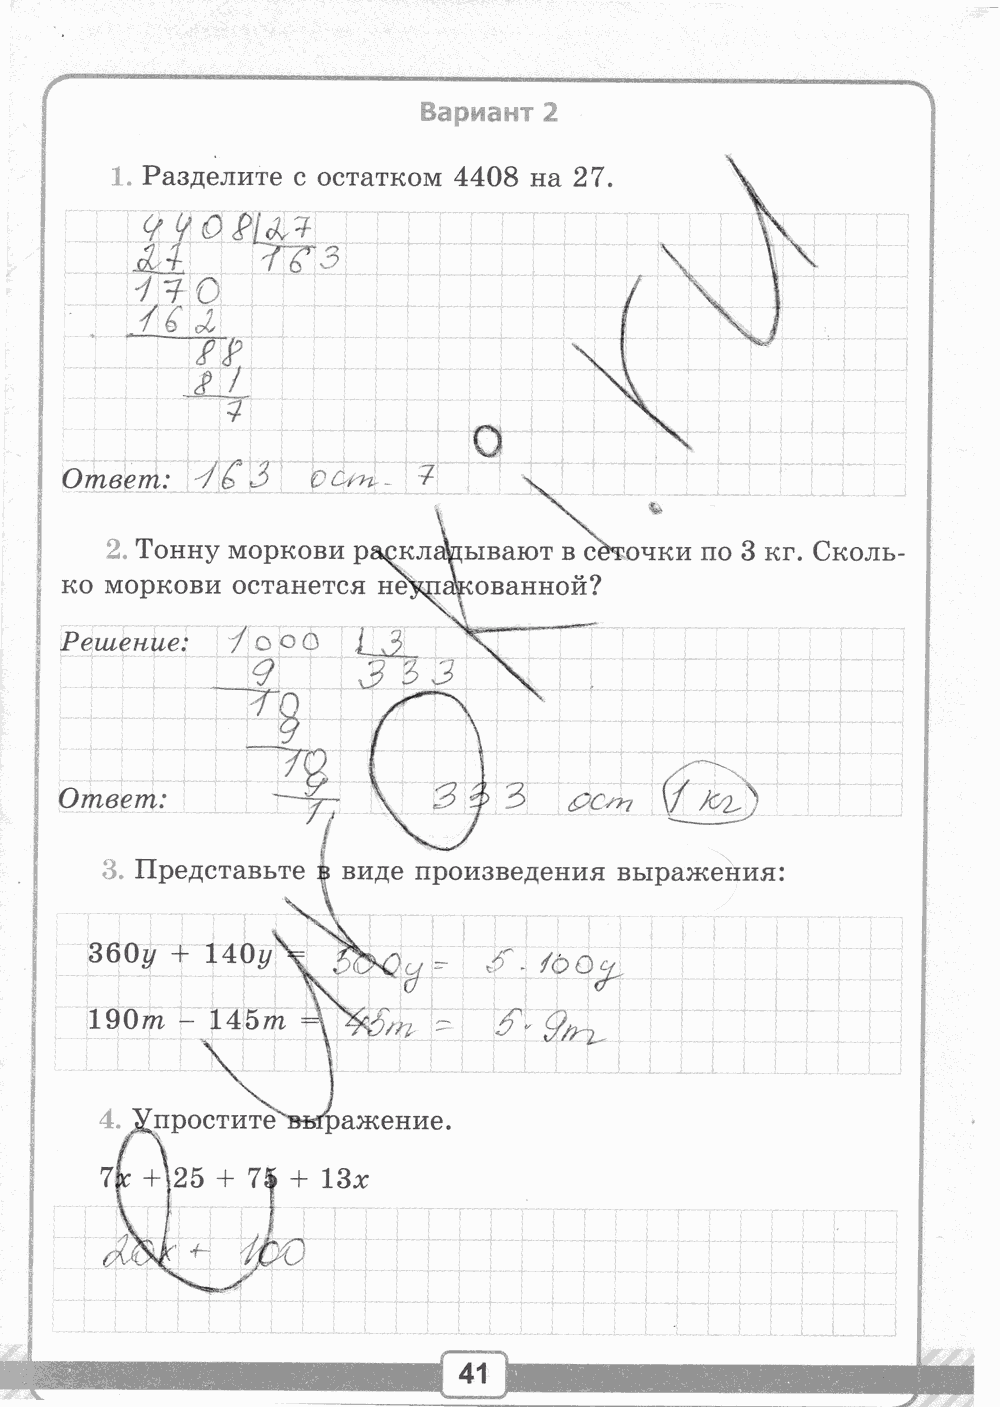 Вариант 2
1. Разделите с остатком 4408 на 27.
4408 27
27 163
170
162
88
81
7
Ответ: 163 ост. 7
2. Тонну моркови раскладывают в сеточки по 3 кг. Сколь-
ко моркови останется неупакованной?
Решение: 1000 3
9 333
10
9
10
9
1
Ответ: 333 ост 1 кг
3. Представьте в виде произведения выражения:
360y + 140y = 500y = 5 · 100y
190m − 145m = 45m = 5 · 9m
4. Упростите выражение.
7x + 25 + 75 + 13x
20x + 100
41